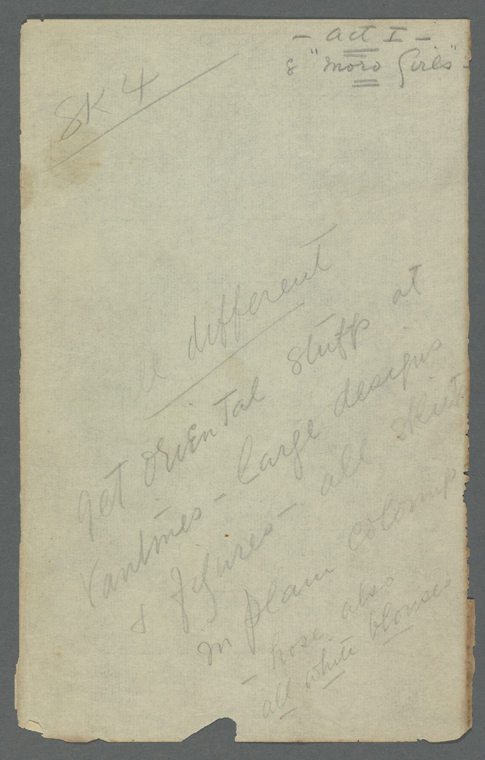 - Act I -
8 "Moro Girls" -
SK 4
all different
get oriental stuff at
Vantines - large designs
& figures - all skirts
in plain colours
- hose also
all white blouses